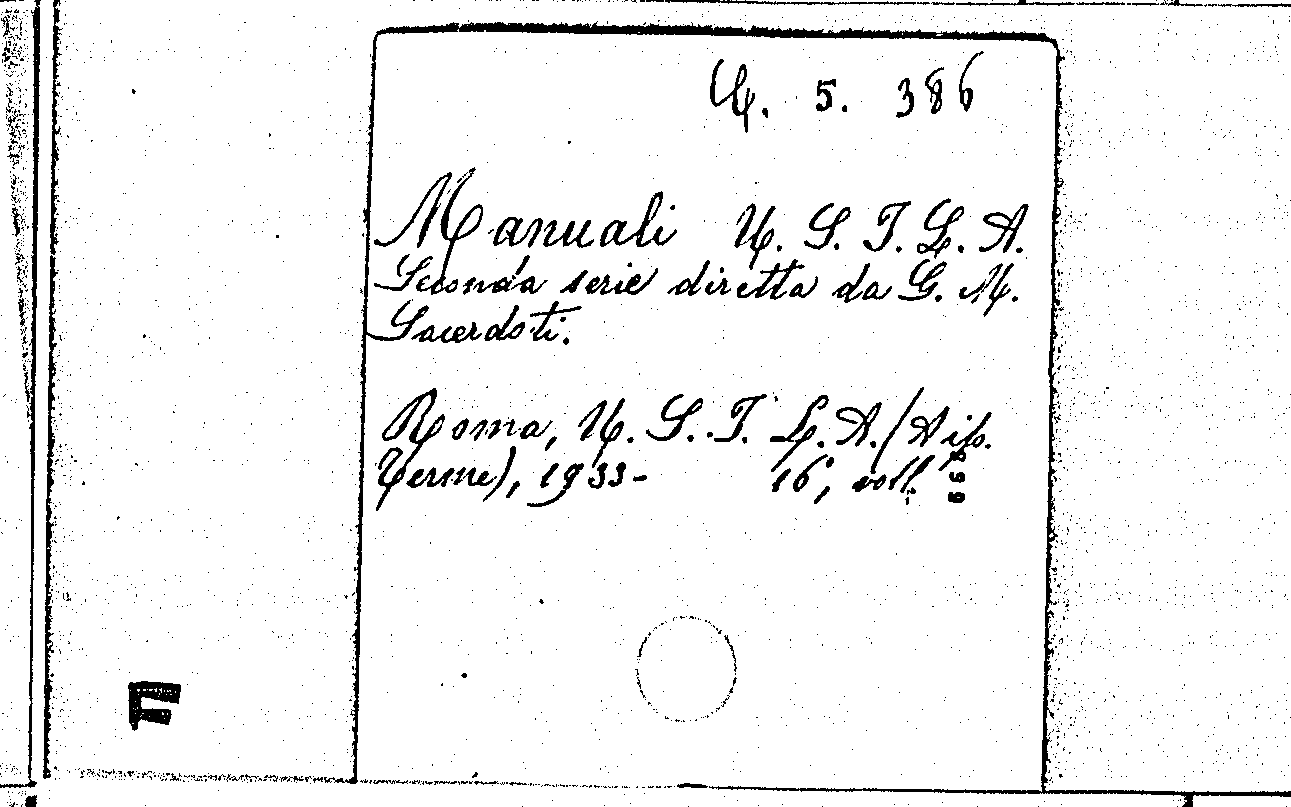 U. 5. 386
Manuali U. S. I. L. A.
Seconda serie diretta da G. M.
Sacerdoti.
Roma, U. S. I. L. A. (Tip.
Terme), 1933- 16°, voll.
F